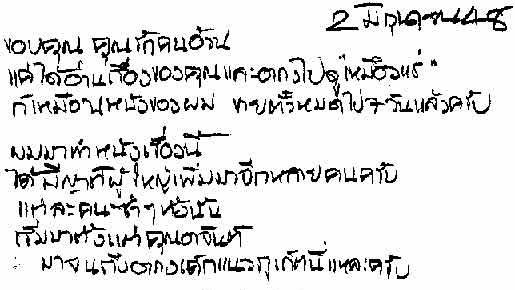 2 มิถุนายน 48
ขอบคุณ คุณรักคนอ่าน
แค่ได้อ่านเรื่องของคุณและตกลงไปดู "เหมืองแร่"
ก็เหมือนหนังของผม ขายทั้งหมดไป 7 วันแล้วครับ
ผมมาทำหนังเรื่องนี้
ได้มีญาติผู้ใหญ่เพิ่มมาอีกหลายคนครับ
แต่ละคน ๆ ทั้งนั้น
เริ่มมาตั้งแต่คุณอาจินต์
มาจนถึง นี่แหละครับ